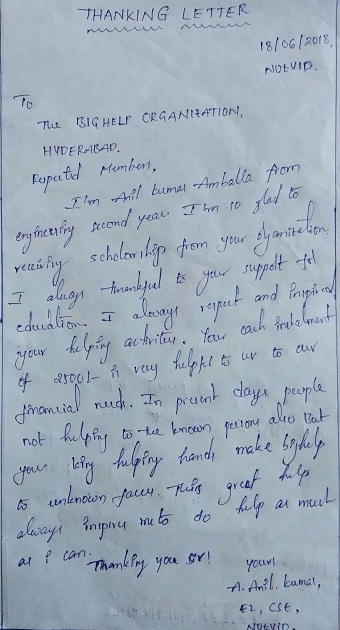 THANKING LETTER
18/06/2018,
NUZVID.
To
The BIGHELP ORGANIZATION,
HYDERABAD.
Respected Members,
I'm Anil kumar Amballa from
engineering second year. I'm so glad to
receiving scholarship from your organization.
I always thankful to your support for
education. I always respect and inspired
your helping activities. Your each instalment
of 2500/- is very helpful to us to our
financial needs. In present days people
not helping to the known persons also But
your king helping hands make bighelp
to unknown faces. This great help
always inspires me to do help as much
as i can.
Thanking you sir!
yours
A. Anil. kumar,
E2, CSE,
NUZVID.